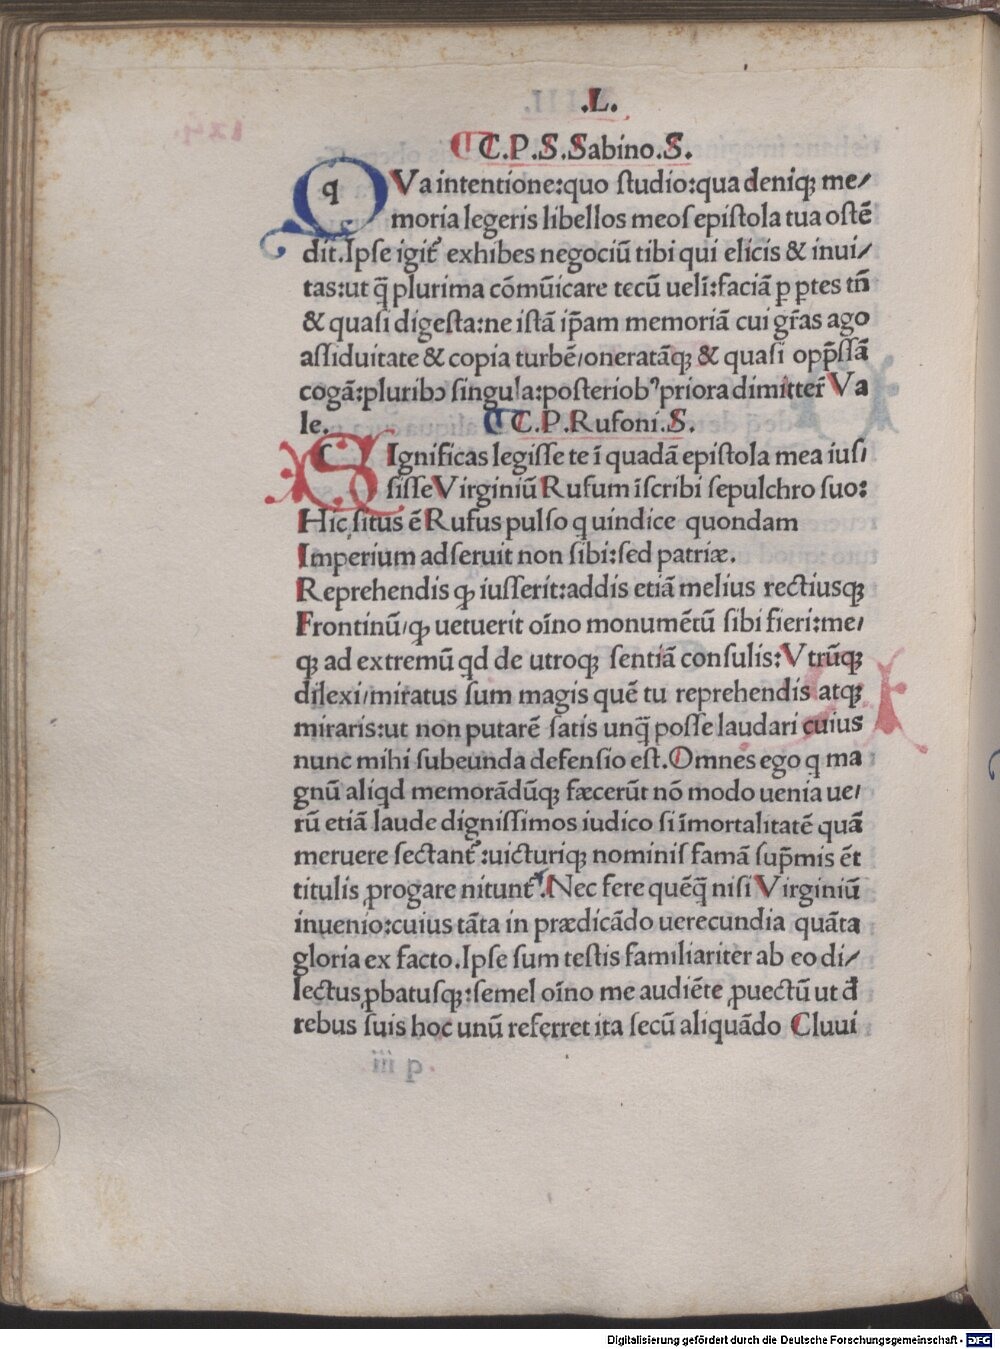 .L.
C.P.S.Sabino.S.
QVa intentione:quo ſtudio:qua deniqꝫ me/
moria legeris libellos meoſ epiſtola tua oſtẽ
dit.Ipſe igit᷑ exhibes negociũ tibi qui elicis & inui/
tas:ut q̃ plurima cõmũicare tecũ ueli᷑:faciã ꝑ ꝑtes tñ
& quaſi digeſta:ne iſtã ip̃am memoriã cui gr̃as ago
aſſiduitate & copia turbẽ/oneratãqꝫ & quaſi opp̃ſſã
cogã:pluribꝰ ſingula:poſteriobꝰ priora dimitter̃ Va
le.
C.P.Rufoni.S.
SIgnificas legiſſe te ĩ quadã epiſtola mea iuſ/
ſiſſe Virginiũ Rufum ĩſcribi ſepulchro ſuo:
Hic ſitus ẽ Rufus pulſo q uindice quondam
Imperium adſeruit non ſibi:ſed patriæ.
Reprehendis ꝙ iuſſerit:addis etiã melius rectiusqꝫ
Frontinũ/ꝙ uetuerit oĩno monumẽtũ ſibi fieri:me/
qꝫ ad extremũ qd de utroqꝫ ſentiã conſulis:Vtrũqꝫ
dilexi/miratus ſum magis quẽ tu reprehendis atqꝫ
miraris:ut non putarẽ ſatis unq̃ poſſe laudari cuius
nunc mihi ſubeunda defenſio eſt.Omnes ego q ma
gnũ aliqd memorãdũqꝫ fæcerũt nõ modo uenia ue/
rũ etiã laude digniſſimos iudico ſi ĩmortalitatẽ quã
meruere ſectant᷑:uicturiqꝫ nominiſ famã ſup̃mis ẽt
titulis ꝓrogare nitunt᷑.Nec fere quẽq̃ niſi Virginiũ
inuenio:cuius tãta in prædicãdo uerecundia quãta
gloria ex facto.Ipſe ſum teſtis familiariter ab eo di/
lectus ꝓbatuſqꝫ:ſemel oĩno me audiẽte ꝓuectũ ut d̃
rebus ſuis hoc unũ referret ita ſecũ aliquãdo Cluui
Digitalisierung gefördert durch die Deutsche Forschungsgemeinschaft - DFG